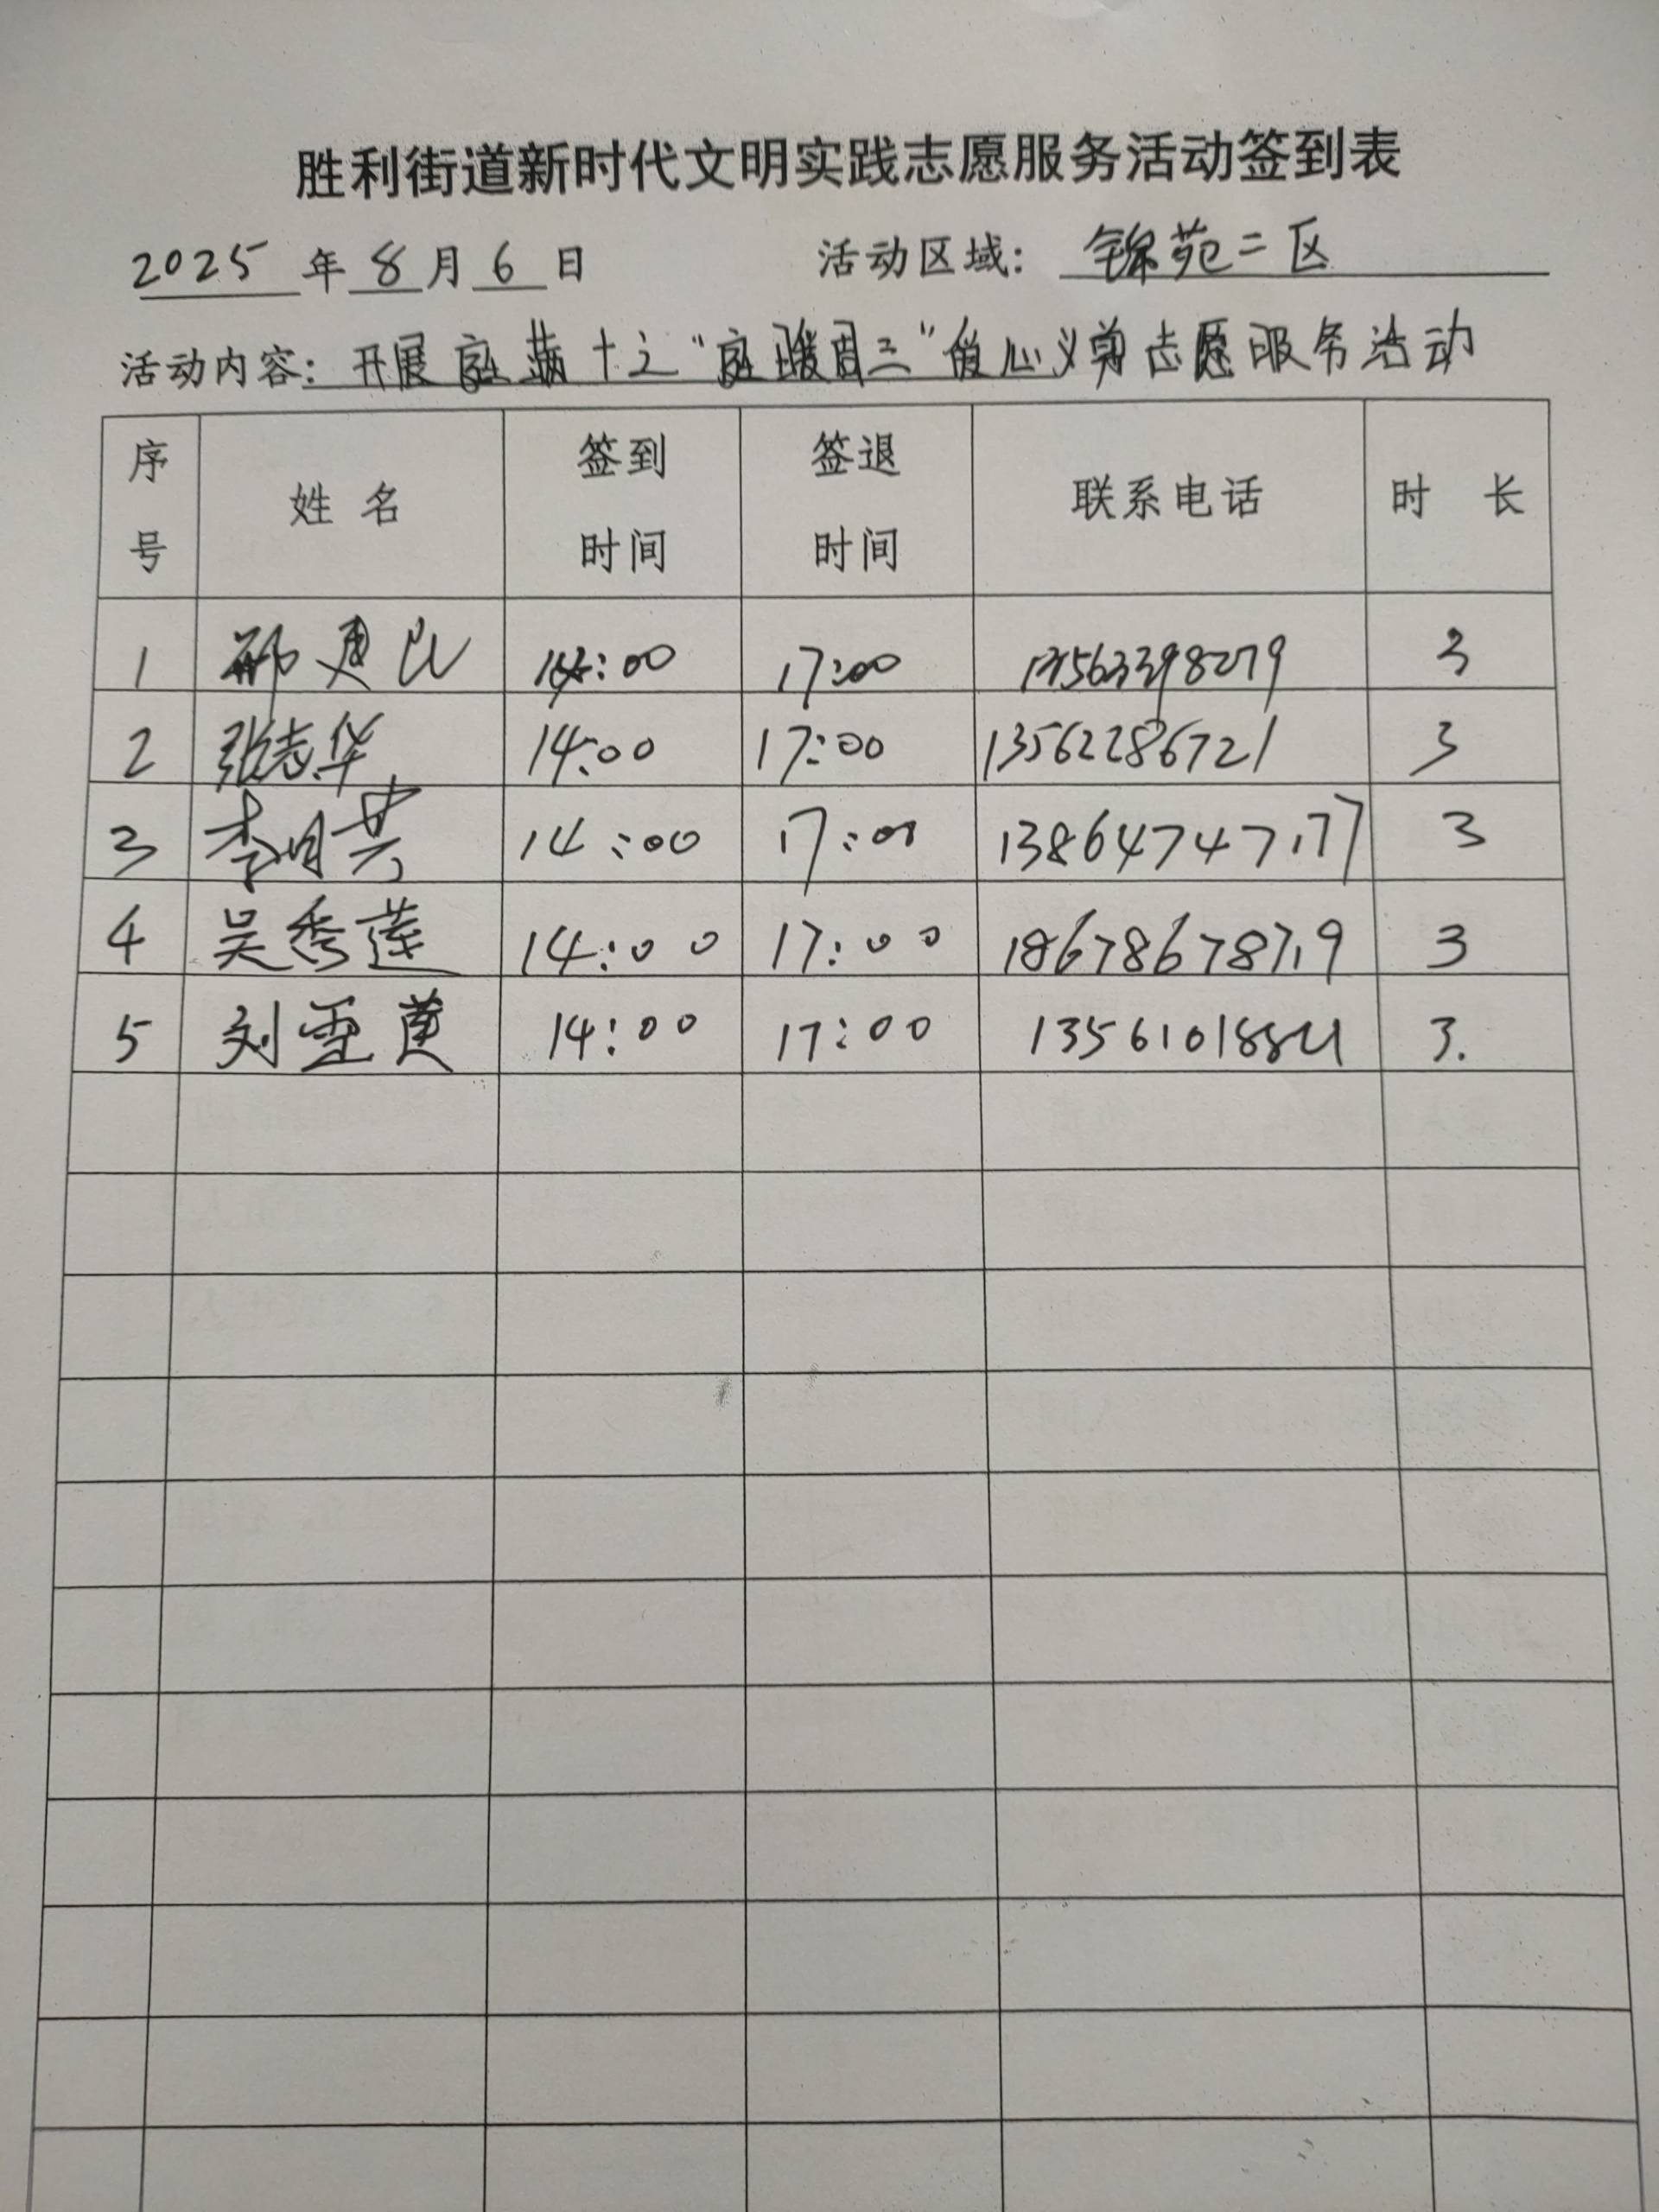 胜利街道新时代文明实践志愿服务活动签到表
2025 年 8 月 6 日 活动区域: 锦苑二区
活动内容: 开展 十之“庭暖周三”爱心义剪志愿服务活动
序号 姓名 签到时间 签退时间 联系电话 时长
1 邢 14:00 17:00 3
2 张志华 14:00 17:00 13562286721 3
3 李月芸 14:00 17:00 13864747177 3
4 吴秀莲 14:00 17:00 18678678719 3
5 刘雪莲 14:00 17:00 3.